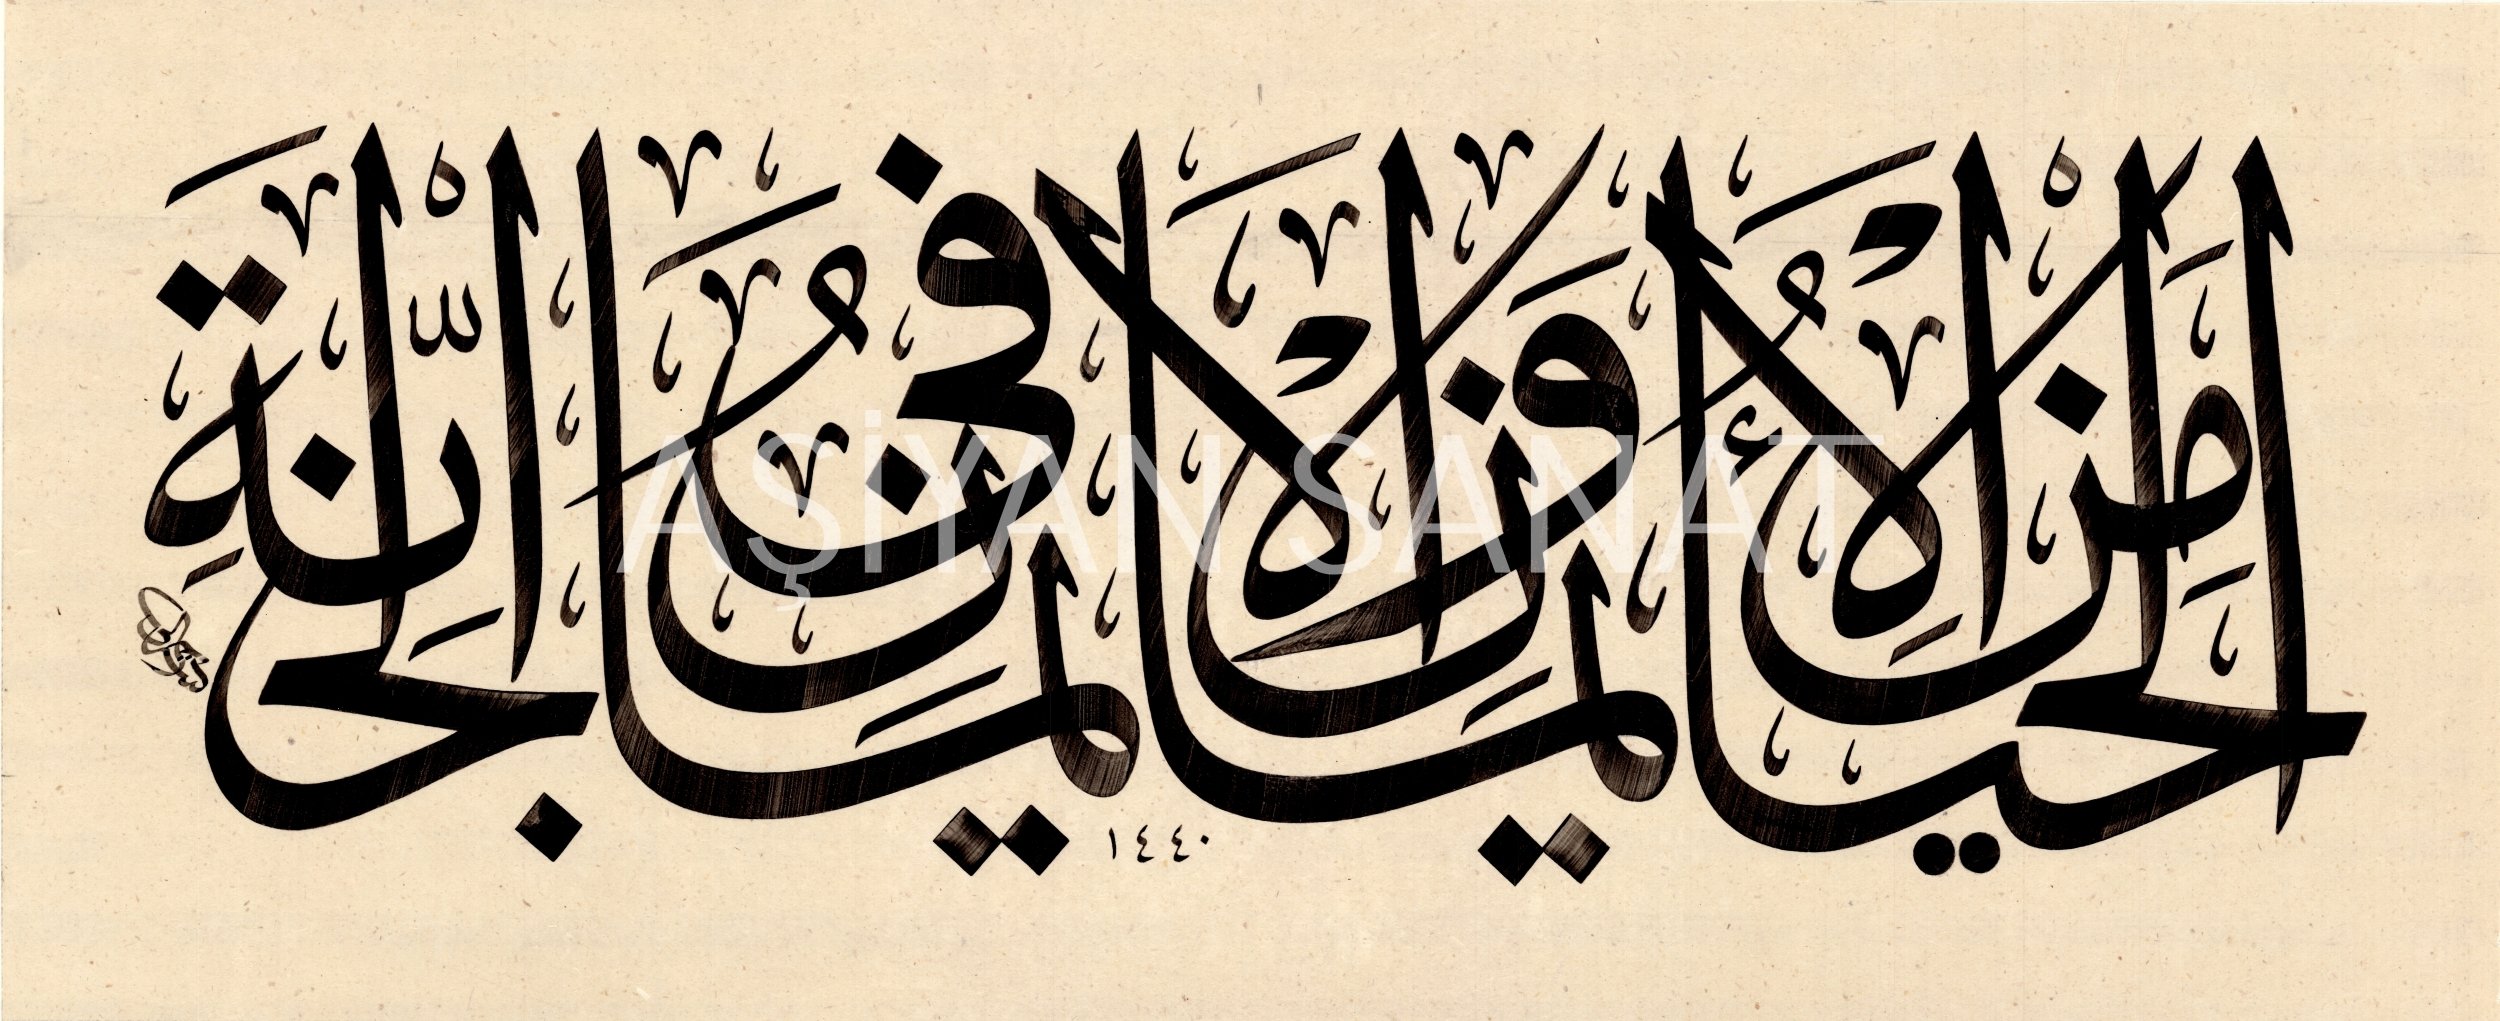 الحياء من الإيمان والإيمان في الجنة
١٤٤٠
AŞİYAN SANAT